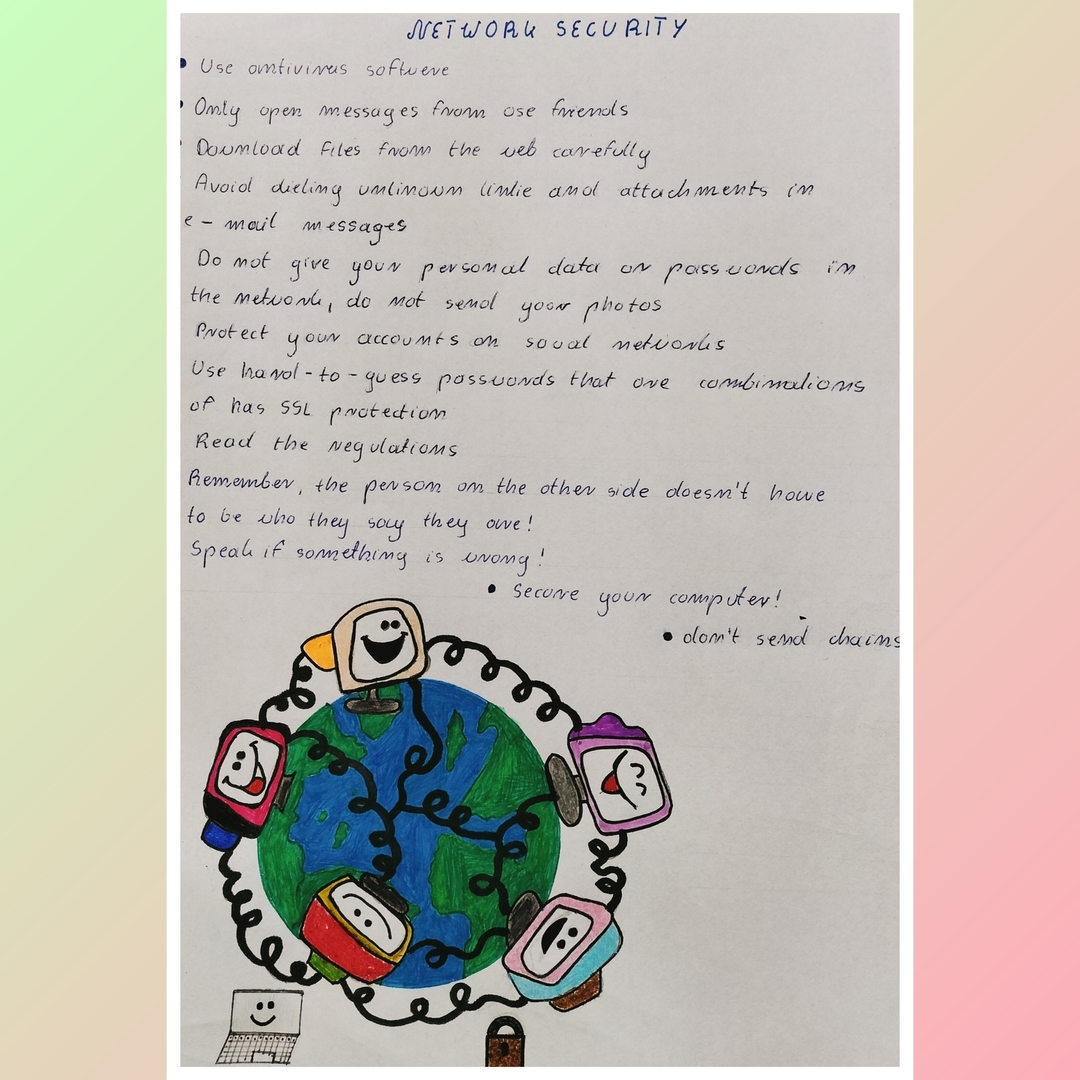 NETWORK SECURITY
• Use antivirus softwere
• Only open messages from ose friends
• Download files from the web carefully
Avoid clicking unknown linke and attachments in
e-mail messages
Do not give your personal data or passwords in
the network, do not send your photos
Protect your accounts on social networks
Use hard-to-guess passwords that are combinations
of has SSL protection
Read the regulations
Remember, the person on the other side doesn't have
to be who they say they are!
Speak if something is wrong!
• Secure your computer!
• don't send chains